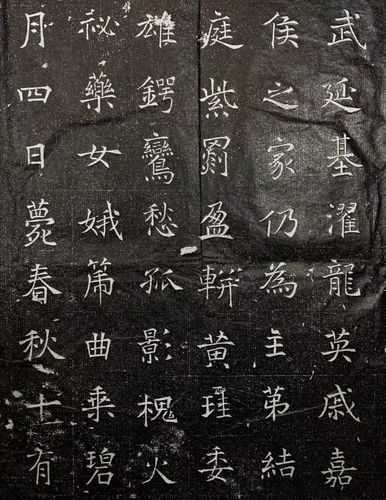 武延基濯龍英戚嘉
侯之家仍為主苐結
庭紫罽盈軿黄珪委
雄鍔鸞愁孤影槐火
祕藥女娥曲乘碧
月四日薨春秋十有